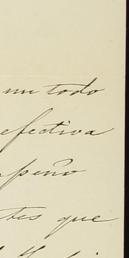 un todo
efectiva
mpeño
tes que